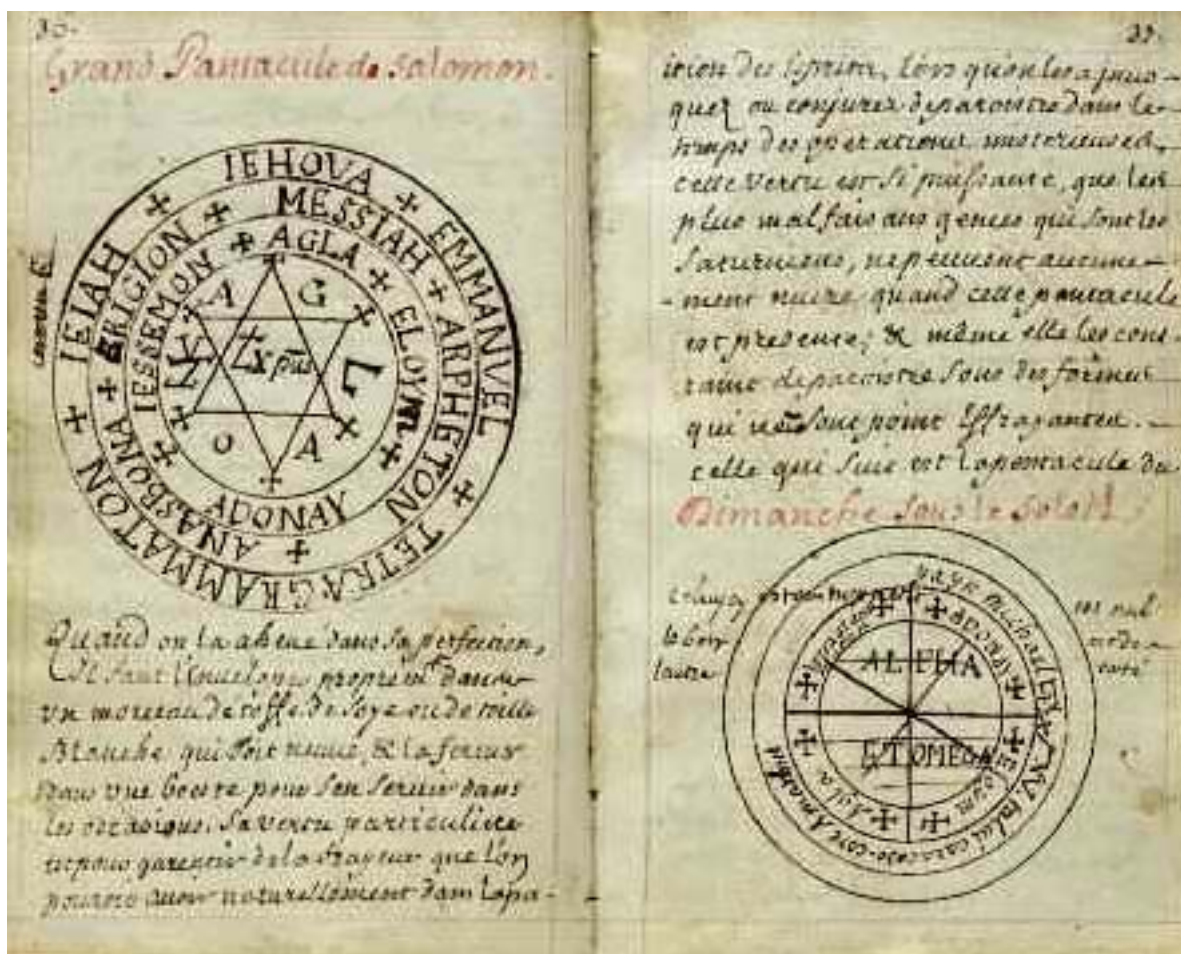 30.
Grand Pantacule de Salomon.
+ IEHOVA + EMMANVEL + TETRAGRAMMATON + IEIAH
+ MESSIAH + ARPHETON + ANASBONA + ERIGION
+ AGLA + ELOYM + ADONAY + IESSEMON
A G
L
O A
Xpūs
Quand on l'a
Il faut dans
vn morceau d'étoffe de soye ou de toille
Blanche qui soit neuve, & la
dans vne boeste pour s'en servir dans
les occasions. Sa vertu particuliere
est pour garentir de la frayeur que l'on
pouroit avoir naturellement dans l'apa-
ition des Esprits, lors qu'on les a jnuo-
quez ou conjurez de paroistre dans le
temps des operations misterieuses,
cette vertu est si puissante, que les
plus malfaisans genies qui sont les
Saturniens, ne peuvent aucune-
ment nuire quand cette pantacule
est presente; & même elle les cons-
traint de paroistre sous des formes
qui ne sont point Effrayantes.
celle qui suit est la pentacule du
Dimanche sous le Soleil
michael
ADONAY
ALPHA
ET OMEGA